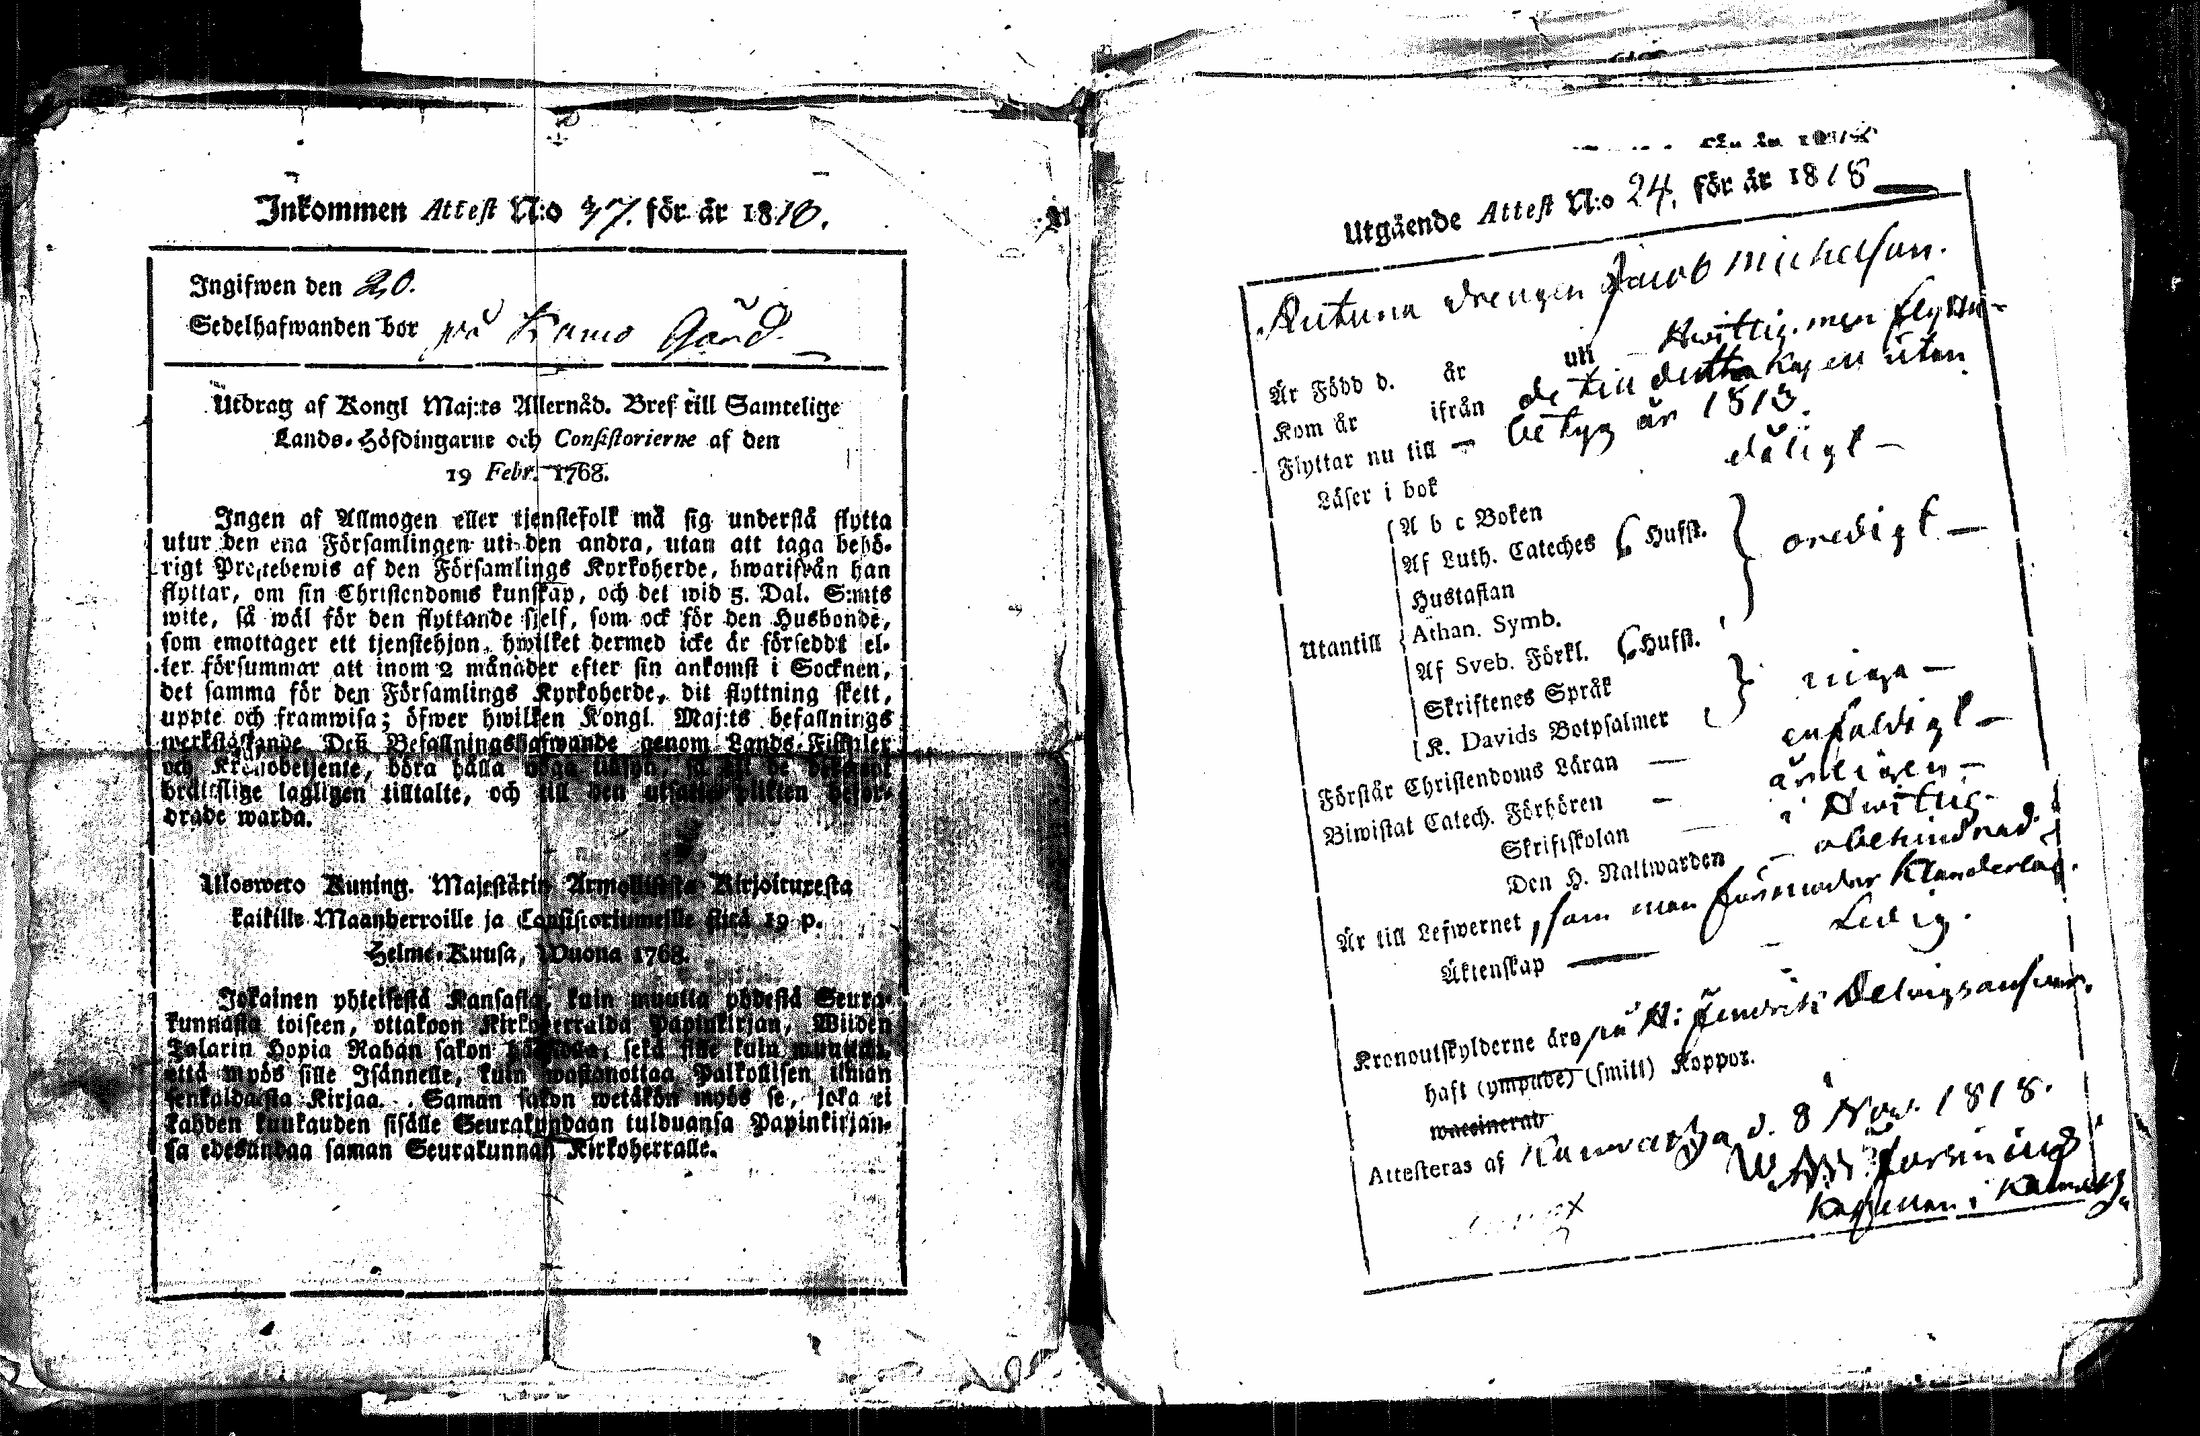 Inkommen Attest N:o 37. för år 1818.
Ingifwen den 20.
Sedelhafwanden bor på Kamo Gård.
Utdrag af Kongl Maj:ts Allernåd. Bref till Samtelige
Lands-Höfdingarne och Consistorierne af den
19 Febr. 1768.
Ingen af Allmogen eller tjenstefolk må sig understå flytta
utur den ena Församlingen uti den andra, utan att taga behö-
rigt Prestebewis af den Församlings Kyrkoherde, hwarifrån han
flyttar, om sin Christendoms kunskap, och det wid 5. Dal. S:mts
wite, så wäl för den flyttande sjelf, som ock för den Husbonde,
som emottager ett tjenstehjon, hwilket dermed icke är förseddt el-
ler försummar att inom 2 månader efter sin ankomst i Socknen,
det samma för den Församlings Kyrkoherde, dit flyttning skett,
uppte och framwisa; öfwer hwilken Kongl. Maj:ts befallnings
werkställande Deß Befallningshafwande genom Lands-Fiskaler
och Kronobetjente, böra hålla noga
brottslige lagligen tilltalte, och till den utsatte plikten befor-
drade warda.
Ulosweto Kuning. Majestätin Armollisesta Kirjoituxesta
kaikille Maanherroille ja Consistoriumeille siitä 19 p.
Helme-Kuusa, Wuona 1768.
Jokainen yhteisestä Kansasta, kuin muutta yhdestä Seura-
kunnasta toiseen, ottakoon Kirkkoherralda Papinkirjan, Wiiden
Talarin Hopia Rahan sakon sekä sille kuin muutta,
että myös sille Isännelle, kuin wastanottaa Palkollisen ilman
senkaldaista Kirjaa. Saman sakon wetäkön myös se, joka ei
kahden kuukauden sisälle Seurakundaan tulduansa Papinkirjan-
sa edesandaa saman Seurakunnan Kirkoherralle.
Utgående Attest N:o 24. för år 1818
drengen Jacob Michelson.
Är Född d. år uti Hwittis, men flytta-
Kom år ifrån de till detta Kapell utan
Flyttar nu till betyg år 1813.
Läser i bok dåligt
Utantill
A b c Boken
Af Luth. Cateches Hufst.
Hustaflan
Athan. Symb.
oredigt
Af Sveb. Förkl. Hufst.
Skriftenes Språk
K. Davids Botpsalmer
inga
Förstår Christendoms Läran enfaldigt
Biwistat Catech. Förhören årligen
Skriftskolan i Hwittis.
Den H. Nattwarden obehindrad
Är till Lefwernet, som man förmodar Klanderlös.
Äktenskap Ledig.
Kronoutskylderne äro på H:
haft (ympade) (smitt) Koppor.
waccinerad
Attesteras af d. 8 Nov. 1818.
Kapellan i